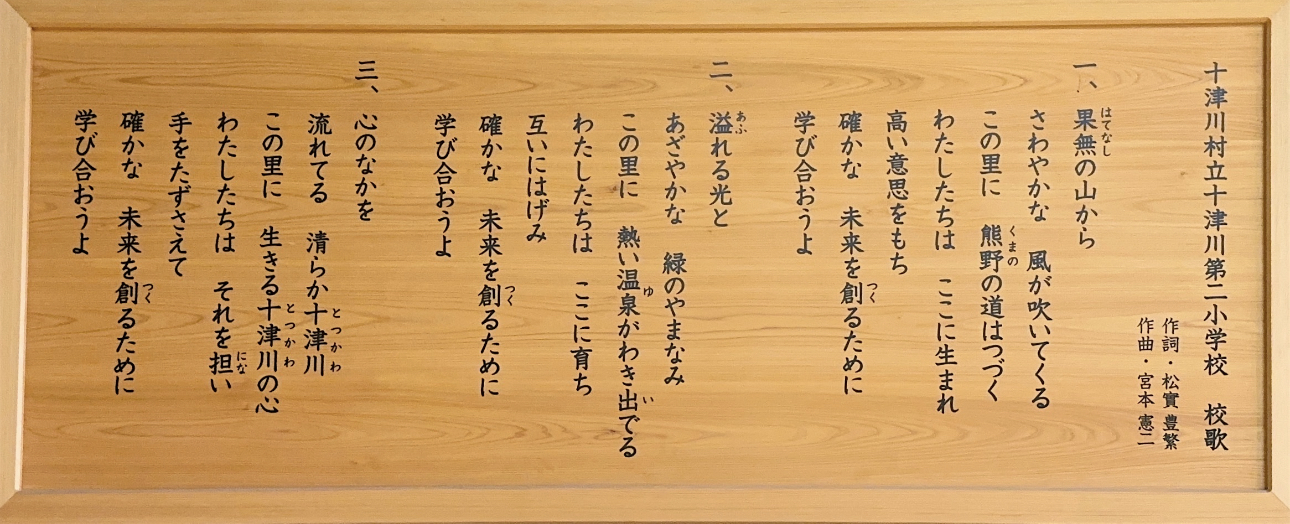 十津川村立十津川第二小学校　校歌
作詞・松實 豊繁
作曲・宮本 憲二
一、果無の山から
はてなし
さわやかな　風が吹いてくる
この里に　熊野の道はつづく
くまの
わたしたちは　ここに生まれ
高い意思をもち
確かな　未来を創るために
つく
学び合おうよ
二、溢れる光と
あふ
あざやかな　緑のやまなみ
この里に　熱い温泉がわき出でる
ゆ
い
わたしたちは　ここに育ち
互いにはげみ
確かな　未来を創るために
つく
学び合おうよ
三、心のなかを
流れてる　清らか十津川
とつかわ
この里に　生きる十津川の心
とつかわ
わたしたちは　それを担い
にな
手をたずさえて
確かな　未来を創るために
つく
学び合おうよ